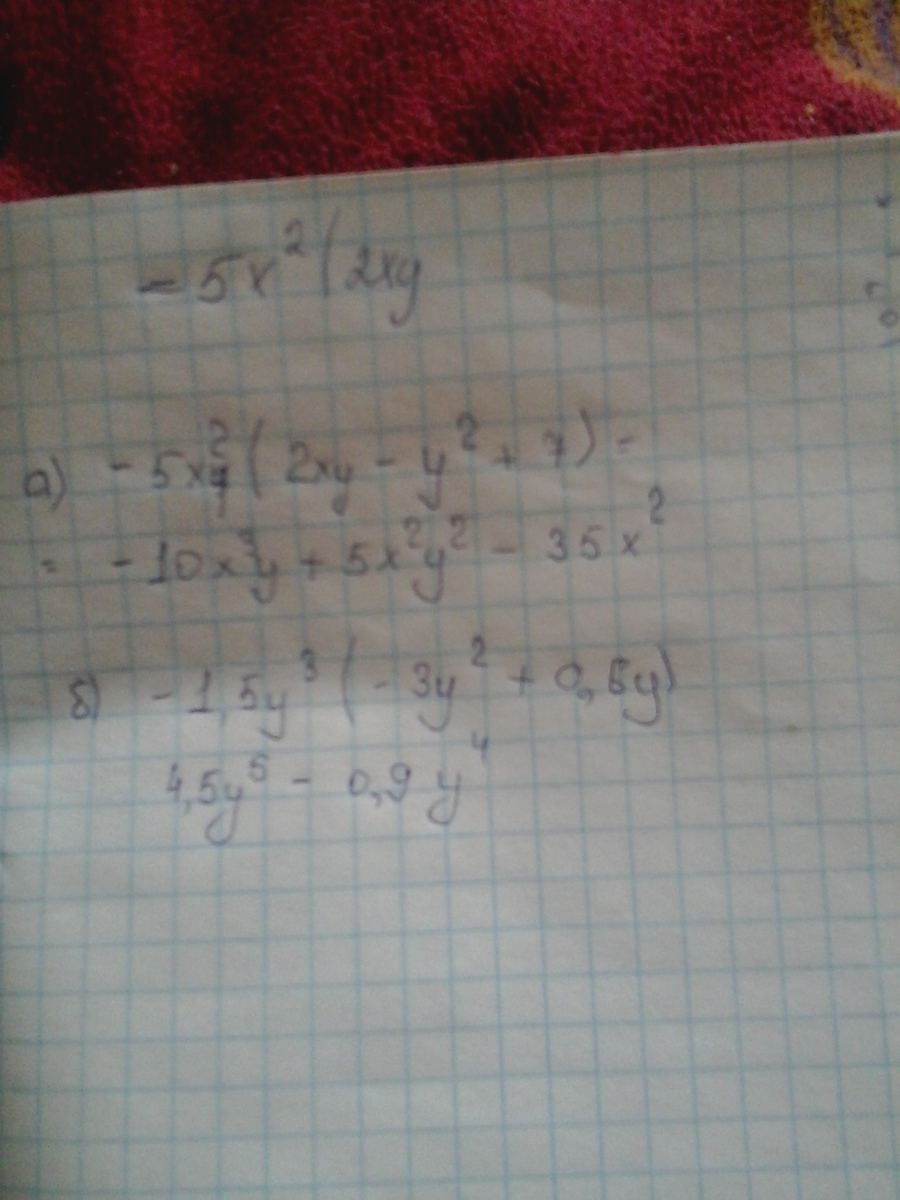 - 5x²(2xy
а) - 5x²(2xy - y² + 7) =
= - 10x³y + 5x²y² - 35x²
б) - 1,5y³(- 3y² + 0,6y)
4,5y⁵ - 0,9y⁴